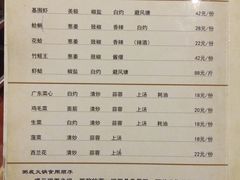 基围虾 美极 椒盐 白灼 避风塘 42元/份
蛏蛹 葱姜 豉椒 香辣 白灼 28元/份
花蛤 葱姜 豉椒 香辣 (辣酒) 22元/份
竹蛏王 葱姜 豉椒 酱爆 42元/份
虾蛄 椒盐 白灼 避风塘 88元/份
广东菜心 白灼 清炒 蒜蓉 上汤 耗油 18元/份
鸡毛菜 清炒 蒜蓉 上汤 18元/份
生菜 白灼 清炒 蒜蓉 上汤 耗油 18元/份
菠菜 清炒 蒜蓉 上汤 18元/份
西兰花 清炒 蒜蓉 上汤 22元/份
粥底火锅食用顺序